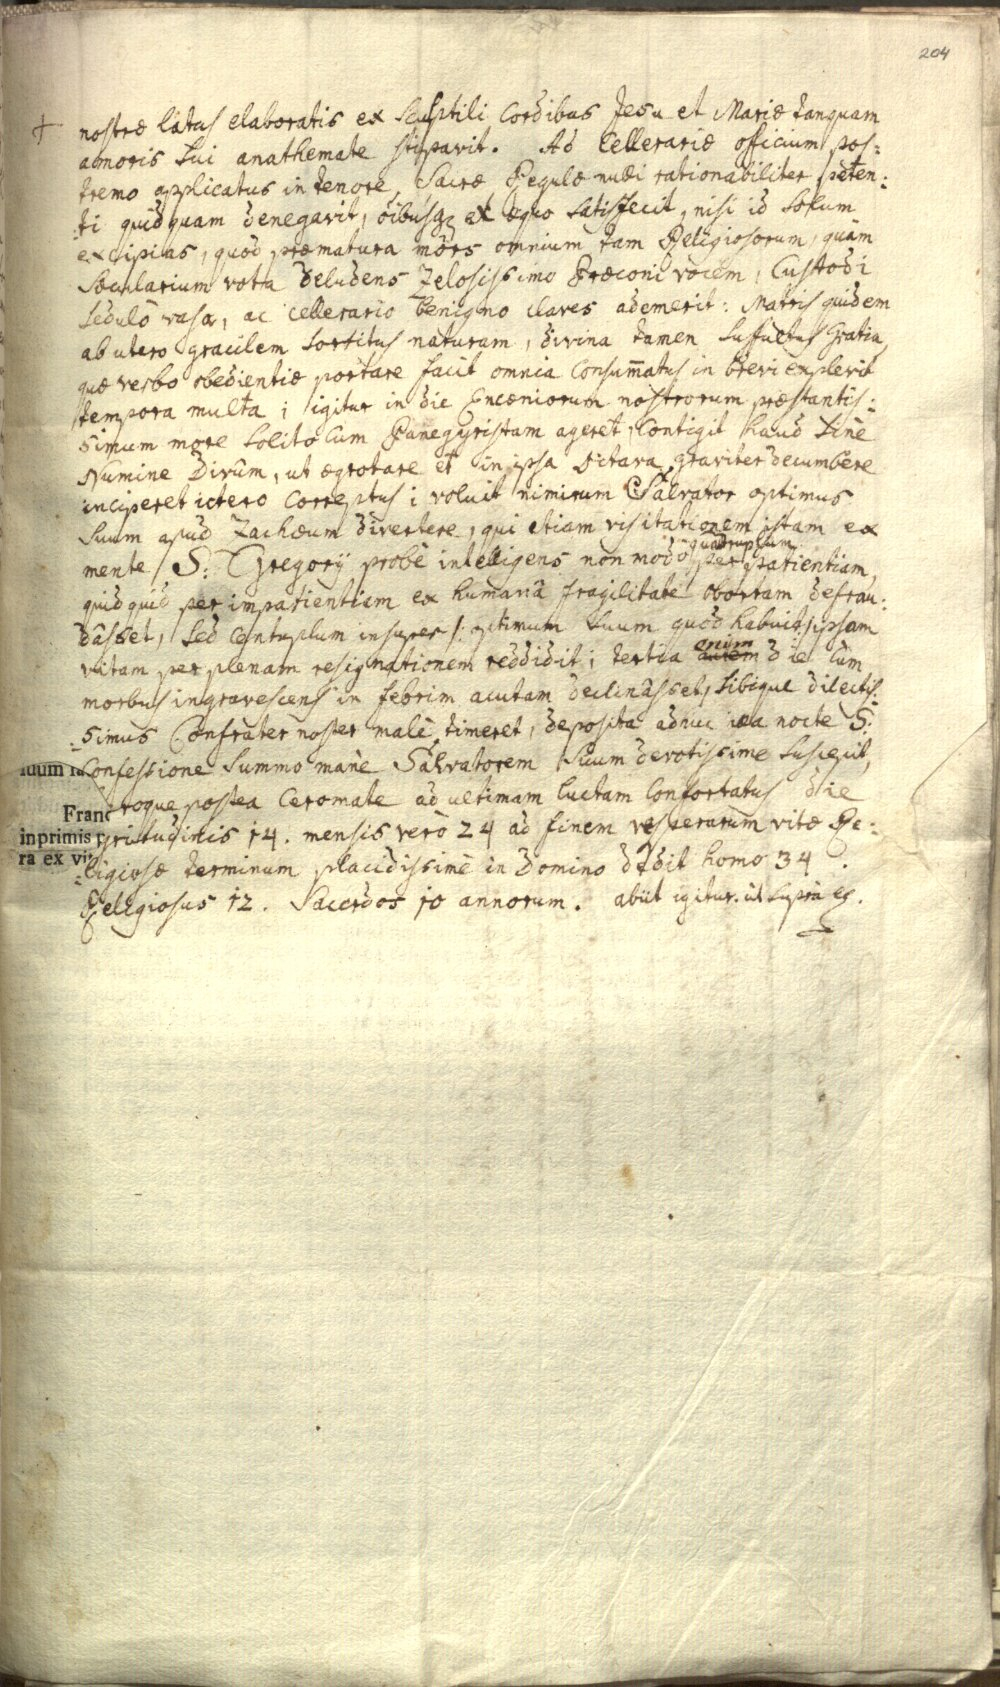 204
nostræ latus elaboratis ex sculptili Cordibus Jesu et Mariæ tanquam
amoris sui anathemate stipavit. Ad Cellerariæ officium pos:
tremo applicatus in tenore Sacræ Regulæ nulli rationabiliter peten:
:ti quidquam denegavit, oibusq ex æquo satisfecit, nisi id solum
excipias, quod præmatura mors omnium tam Religiosorum, quam
Sæcularium vota deludens Zelosissimo Præconi vocem, Custodi
sedulo vasa, ac cellerario benigno claves ademerit: Matris quidem
ab utero gracilem sortitus naturam, divina tamen suffultus Gratia,
quæ verbo obedientiæ portare facit omnia Consumatus in brevi explevit
tempora multa; igitur in die Encæniorum nostrorum præstantis:
simum more solito cum Panegyristam ageret, Contigit haud sine
Numine Divûm, ut ægrotare et in ipsa octava graviter decumbere
inciperet ictero Correptus; voluit nimirum Salvator optimus
suum apud Zachæum divertere, qui etiam visitationem istam ex
mente S: Gregorÿ probe intelligens non modo quadruplum per patientiam,
quidquid per impatientiam ex humana fragilitate obortam defrau:
dâsset, sed Centuplum insuper /: ultimum suum quod habuit, ipsam
vitam per plenam resignationem reddidit; tertia autem enim die cum
morbus ingravescens in febrim acutam declinâsset, sibique dilectis:
:simus Confrater noster malè timeret, deposita adhuc ea nocte S:
Confessione summo mane Salvatorem suum devotissime suscepit,
roque postea Ceromate ad ultimam luctam Confortatus die
ægritudinis 14. mensis verò 24 ad finem vesperarum vitæ Re:
:ligiosæ terminum placidissimè in Domino dedit homo 34.
Religiosus 12. Sacerdos 10 annorum. abiit igitur. ut supra
Franc
inprimis
ra ex vi